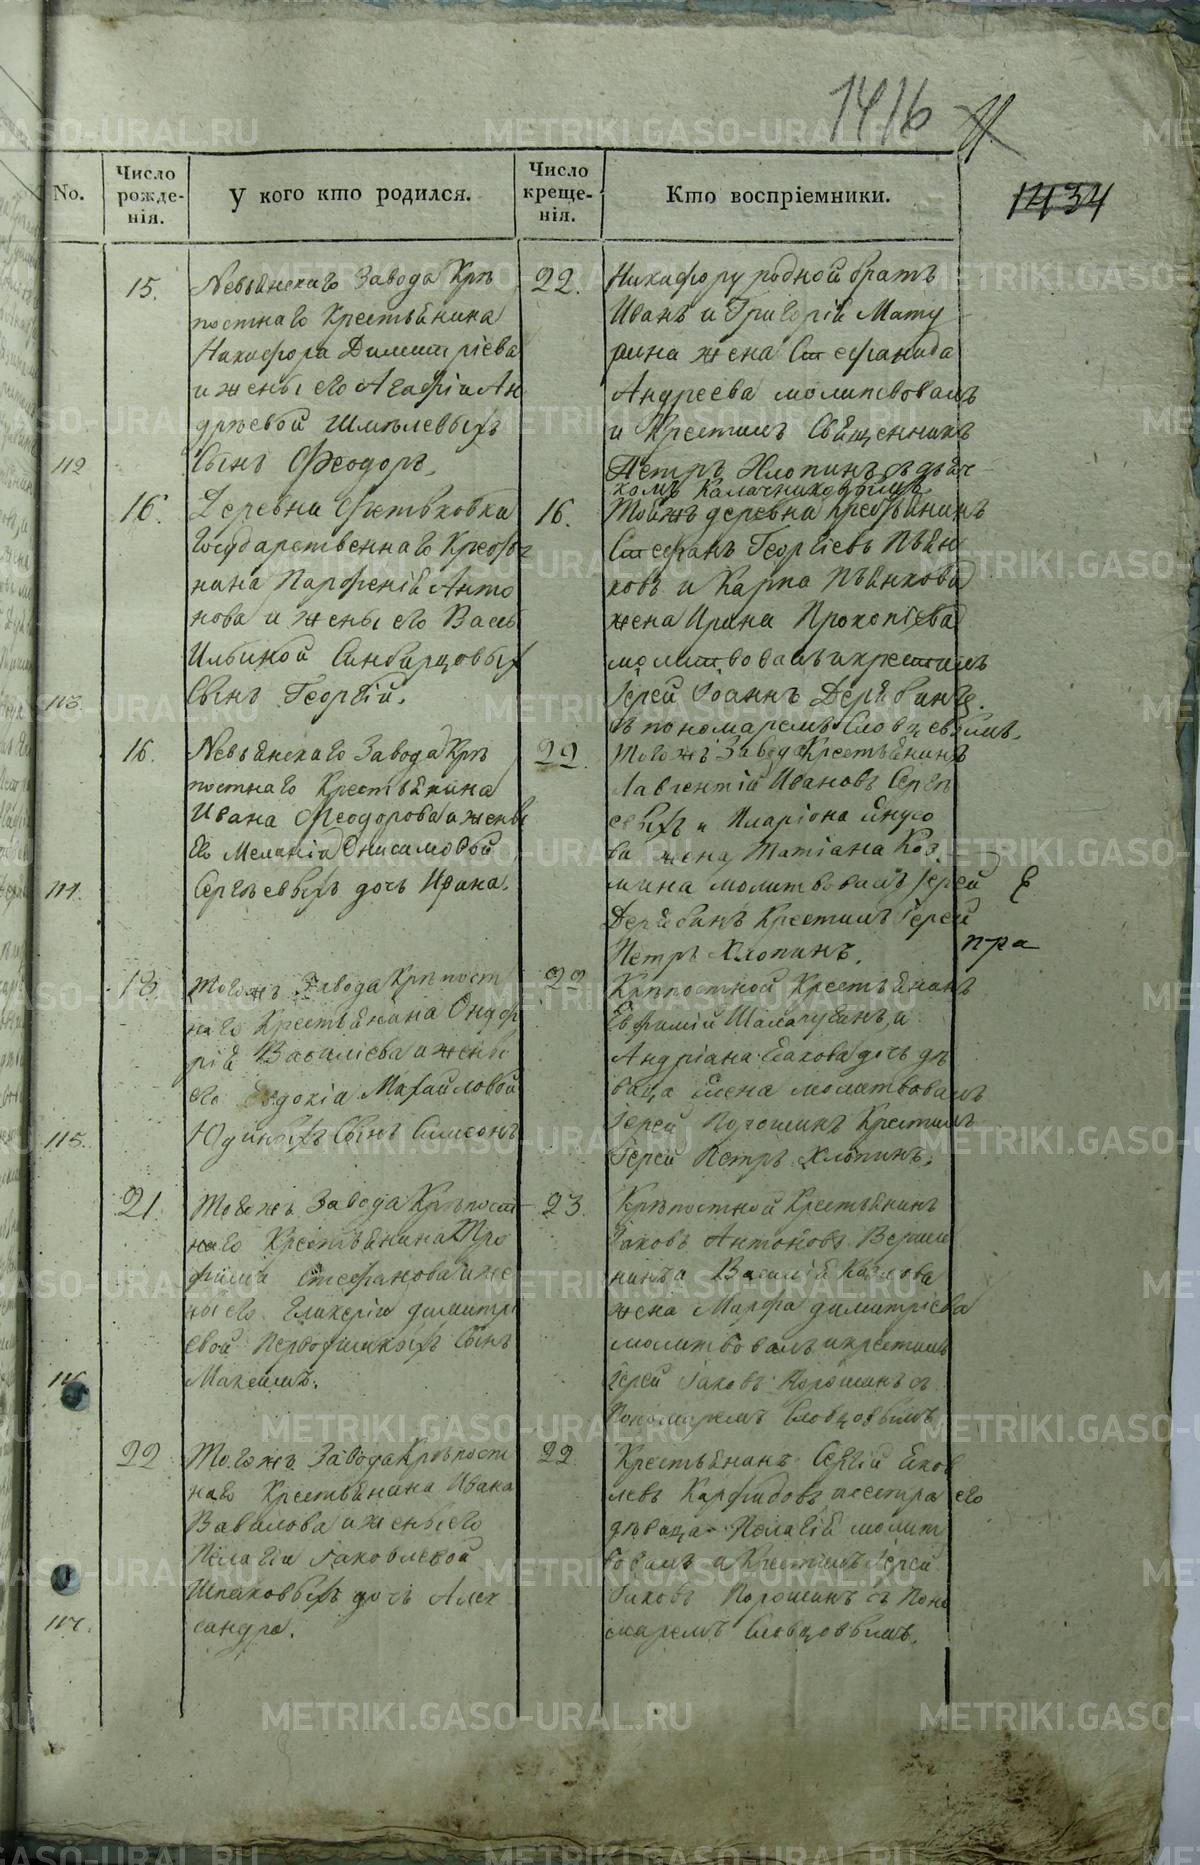 1416
1434
No.
Число рожде-нія.
У кого кто родился.
Число креще-нія.
Кто воспріемники.
112
15.
Невьянскаго Завода Крѣ
постнаго Крестьянина
Никифора Димитріева
и жены его Агафіи Ан
дрѣевой Шмѣлевыхъ
Сынъ Феодоръ.
22.
Никифору родной братъ
Иванъ и Григорій Мату
рина жена Стефанида
Андреева молитвовалъ
и Крестилъ Священникъ
Петръ Хлопинъ съ дьяч
комъ Калачниковымъ
113.
16.
Деревни Фетьковка
Государственнаго Кресть
нина Парфеній Анто
нова и жены его Васи
Ильиной Синбирцовых
Сынъ Георгій.
16.
Тойжъ деревни Крестьянинъ
Стефанъ Георгіевъ Пьян
ковъ и Карпа Пьянкова
жена Ирина Прокопіева
молитвовалъ и крестилъ
Іерей Іоаннъ Дерябинъ
съ пономаремъ Словцевымъ.
114.
16.
Невьянскаго Завода Крѣ
постнаго Крестьянина
Ивана Феодорова и жены
его Меланіи Онисимовой
Сергѣевыхъ дочь Ирина.
22.
Тогожъ Завода Крестьянинъ
Лаврентій Ивановъ Сергѣ
евыхъ и Иларіона
ва жена Татіана Коз
мина молитвовалъ Іерей
Дерябинъ Крестилъ Іерей
Петръ Хлопинъ.
п-ра
115.
18
Тогожъ Завода Крѣпост
наго Крестьянина Онуф
рій Василіева и жены
его Евдокіи Михайловой
Юдиныхъ Сынъ Симеонъ
22
Крѣпостной Крестьянинъ
Евфимій и
Андріана дочь дѣ
вица Елена молитвовалъ
Іерей Порошинъ Крестилъ
Іерей Петръ Хлопинъ.
116
21
Тогожъ Завода Крѣпост
наго Крестьянина Тро
фима Стефанова и же
ны его Гликеріи димитрі
евой Сынъ
Максимъ.
23
Крѣпостной Крестьянинъ
Іаковъ Антоновъ Верши
нинъ и Василій Козлова
жена Марфа димитріева
молитвовалъ и крестилъ
Іерей Іаковъ Порошинъ съ
Пономаремъ Словцовымъ
117.
22
Тогожъ Завода Крѣпост
наго Крестьянина Ивана
Вавилова и жены его
Пелагіи Іаковлевой
Шпаковыхъ дочь Алек
сандра.
22
Крестьянинъ Сергій Еков
левъ Карфидовъ и сестра его
дѣвица Пелагій молит
вовалъ и Крестилъ Іерей
Іаковъ Порошинъ съ Поно
маремъ Словцовымъ.
METRIKI.GASO-URAL.RU